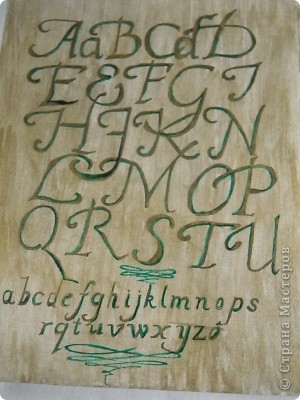 AaBCdD
EEFGI
HJKN
LMOP
QRSTU
abcdefghijklmnops
rqtuvwxyzó
© Страна Мастеров